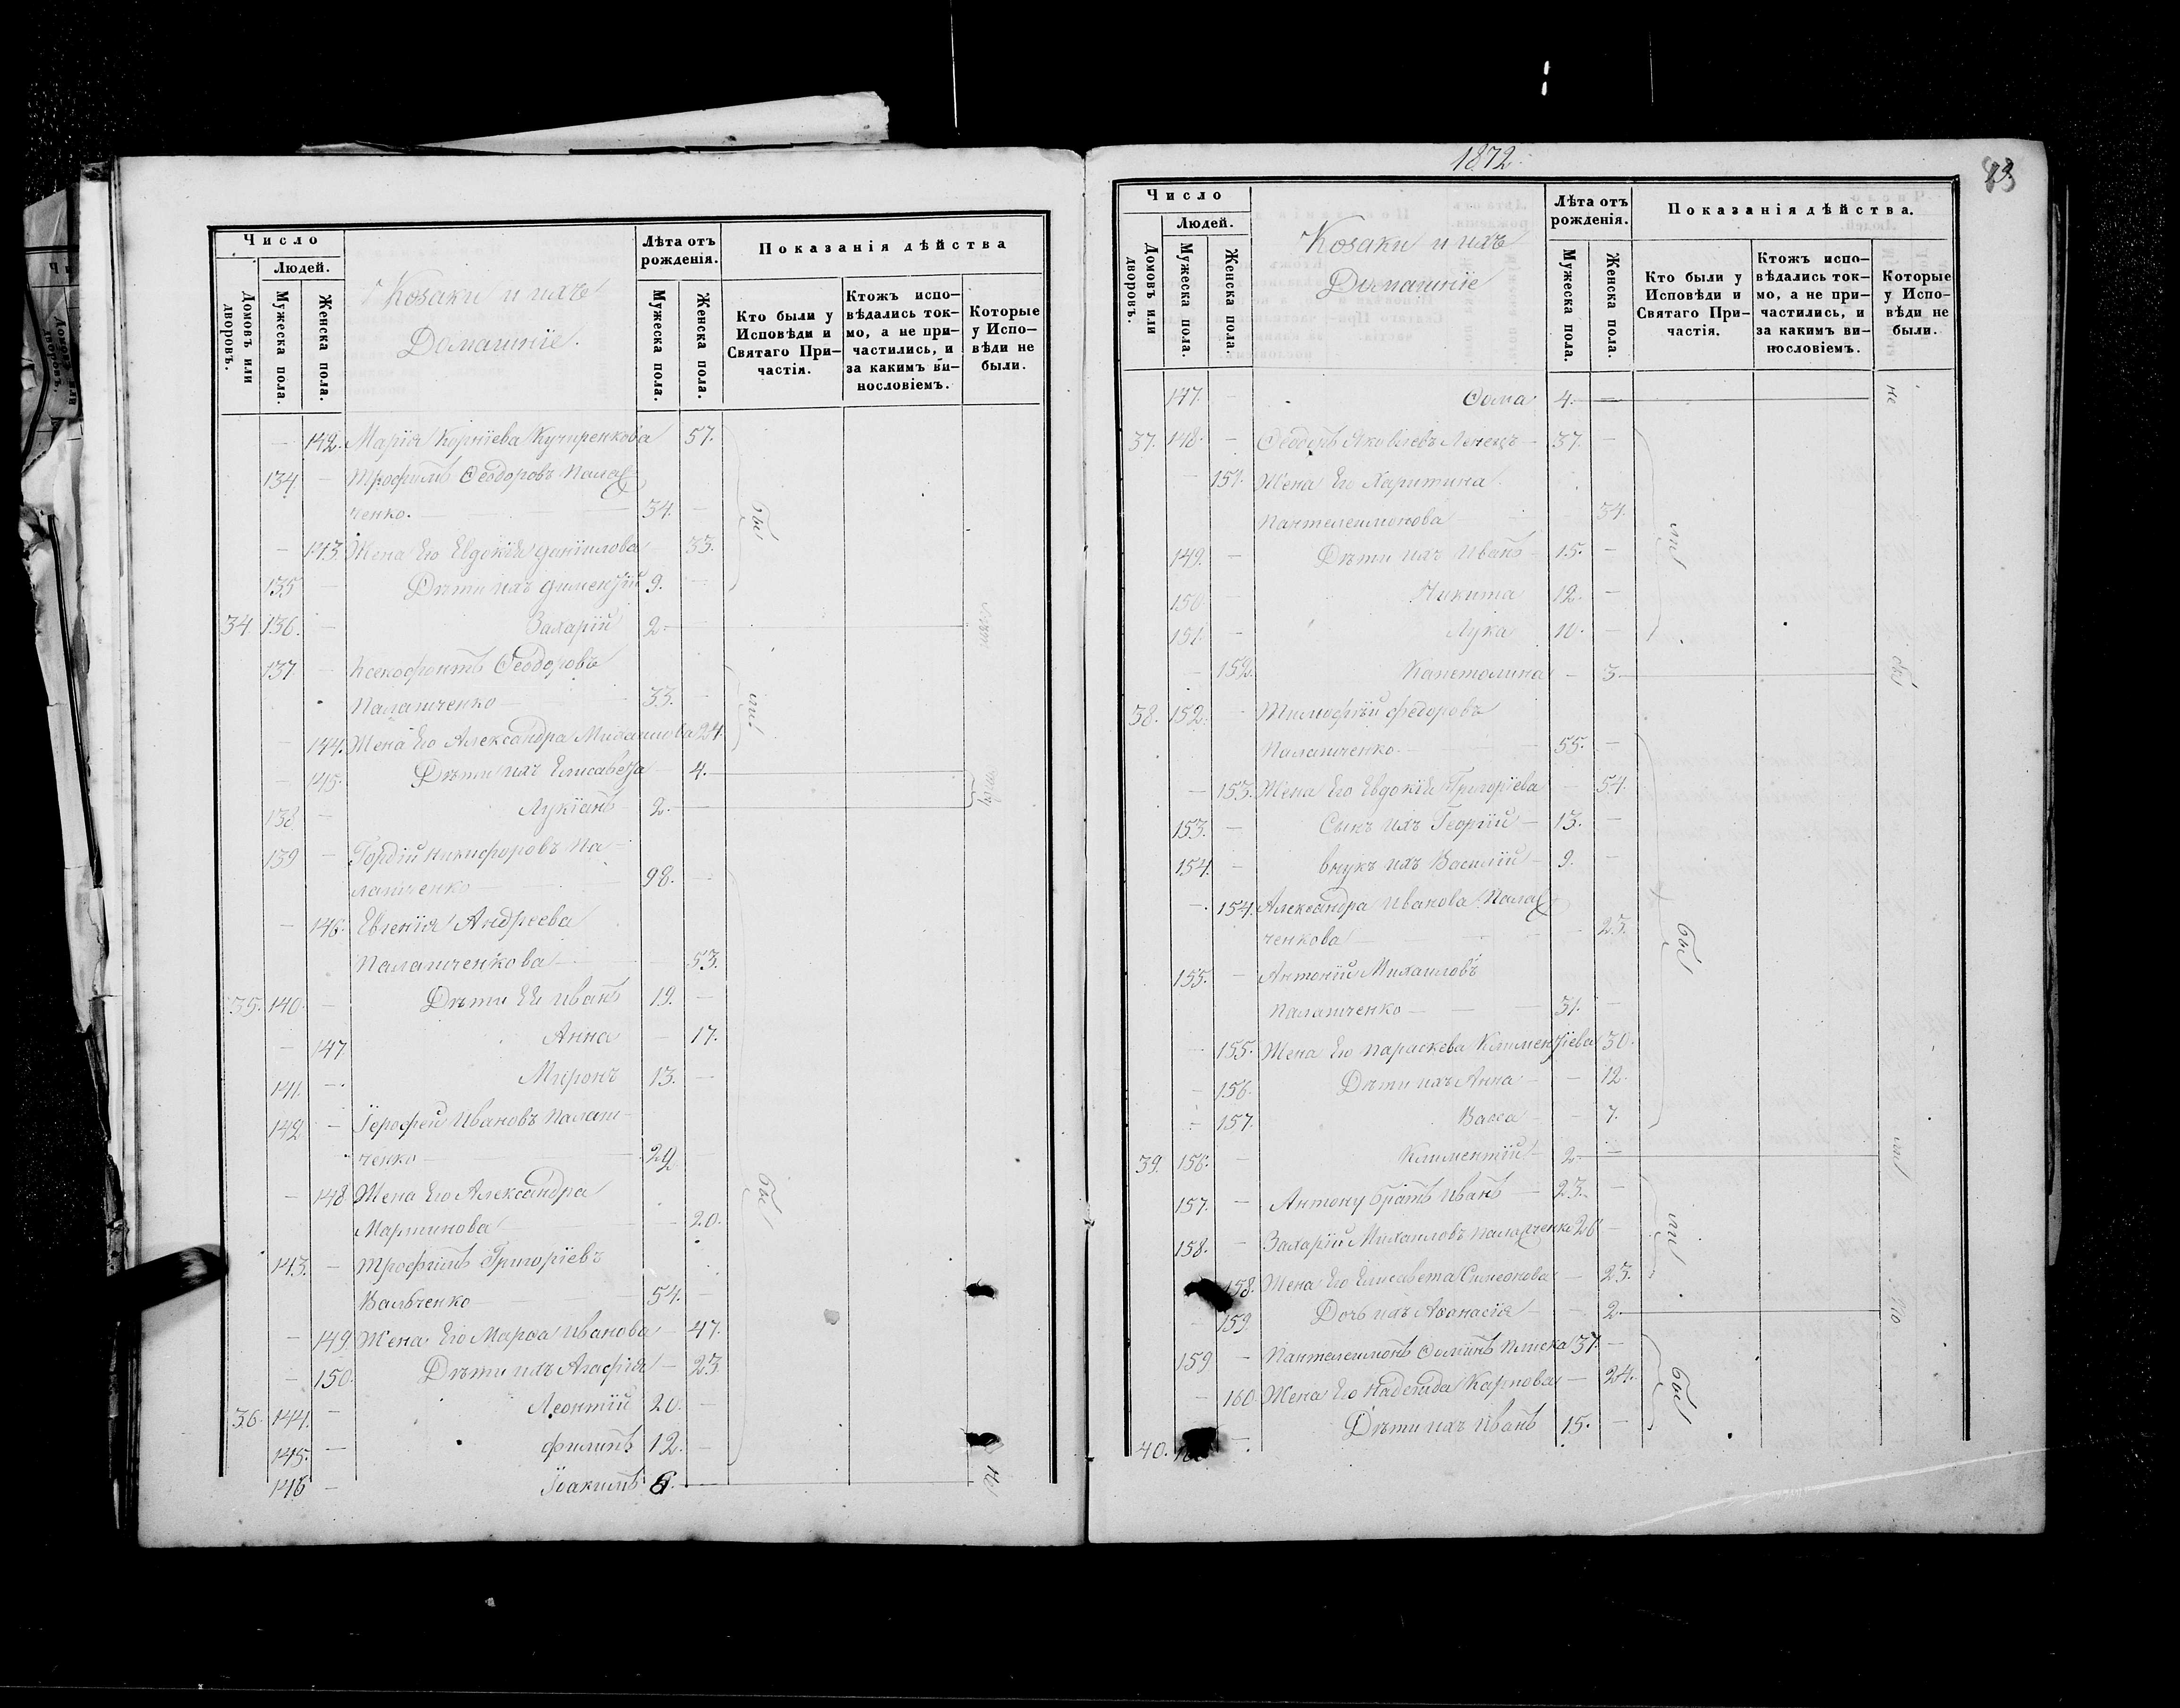 Число
Людей.
Домовъ или дворовъ.
Мужеска пола.
Женска пола.
Козаки и ихъ
Домашніе.
Лѣта отъ рожденія.
Мужеска пола.
Женска пола.
Показанія дѣйства
Кто были у Исповѣди и Святаго Причастія.
Ктожъ исповѣдались токмо, а не причастились, и за какимъ винословіемъ.
Которые у Исповѣди не были.
— 142. Марія Корніева Кучиренкова 57.
134 — Трофимъ Ѳеодоровъ Палат
ченко. 34. —
— 143. Жена Его Евдокія Даніилова 33.
135 — Дѣти ихъ Диментій 9. —
34. 136. — Захарій 2.
137 — Ксенофонтъ Ѳеодоровъ
Палатченко 33. —
— 144. Жена Его Александра Михаилова 24.
— 145. Дѣти ихъ Елисавета 4.
138 — Лукіанъ 2. —
139 — Гордій Никифоровъ Па-
латченко 98. —
— 146. Евгенія Андреева
Палатченкова — 53.
35. 140. — Дѣти Ея Иванъ 19. —
— 147 Анна — 17.
141. — Миронъ 13. —
142 — Іерофей Ивановъ Палат-
ченко 29
— 148 Жена Его Александра
Мартинова — 20.
143. — Трофимъ Григоріевъ
Вальченко 54. —
— 149. Жена Его Марѳа Иванова — 47.
— 150. Дѣти ихъ Агафія — 23
36. 144. — Леонтій 20. —
145. — Филипъ 12. —
146 — Іоакимъ 6. —
были
не
1872.
83
Число
Людей.
Домовъ или дворовъ.
Мужеска пола.
Женска пола.
Козаки и ихъ
Домашніе
Лѣта отъ рожденія.
Мужеска пола.
Женска пола.
Показанія дѣйства.
Кто были у Исповѣди и Святаго Причастія.
Ктожъ исповѣдались токмо, а не причастились, и за какимъ винословіемъ.
Которые у Исповѣди не были.
147. — Ѳома 4. —
37. 148. — Ѳеодотъ Яковлевъ 37. —
— 151. Жена Его Харитина
Пантелеимонова 34.
149. — Дѣти ихъ Иванъ 15. —
150 — Никита 12. —
151. — Лука 10. —
— 152. Капетолина — 3
38. 152. — Тимофій Федоровъ
Палатченко 55. —
— 153. Жена Его Евдокія Григоріева — 54.
153. — Сынъ ихъ Георгій 13. —
154. — Внукъ ихъ Василій 9. —
— 154. Александра Иванова Палат
ченкова 23.
155. — Антоній Михаиловъ
Палатченко 31. —
— 155. Жена Его Параскева Климентіева 30.
— 156. Дѣти ихъ Анна — 12.
— 157. Васса — 7.
39. 156. — Климентій 2 —
157. — Антону братъ Иванъ 23. —
158. — Захарій Михаиловъ Палатченко 26 —
158. Жена Его Елисавета Симеонова — 23.
— 159 Дочь ихъ Аѳанасія — 2
159 — Пантелеимонъ Ѳоминъ 37. —
— 160 Жена Его Надежда Карпова — 24.
40. — Дѣти ихъ Иванъ 15. —
не
бы
ли